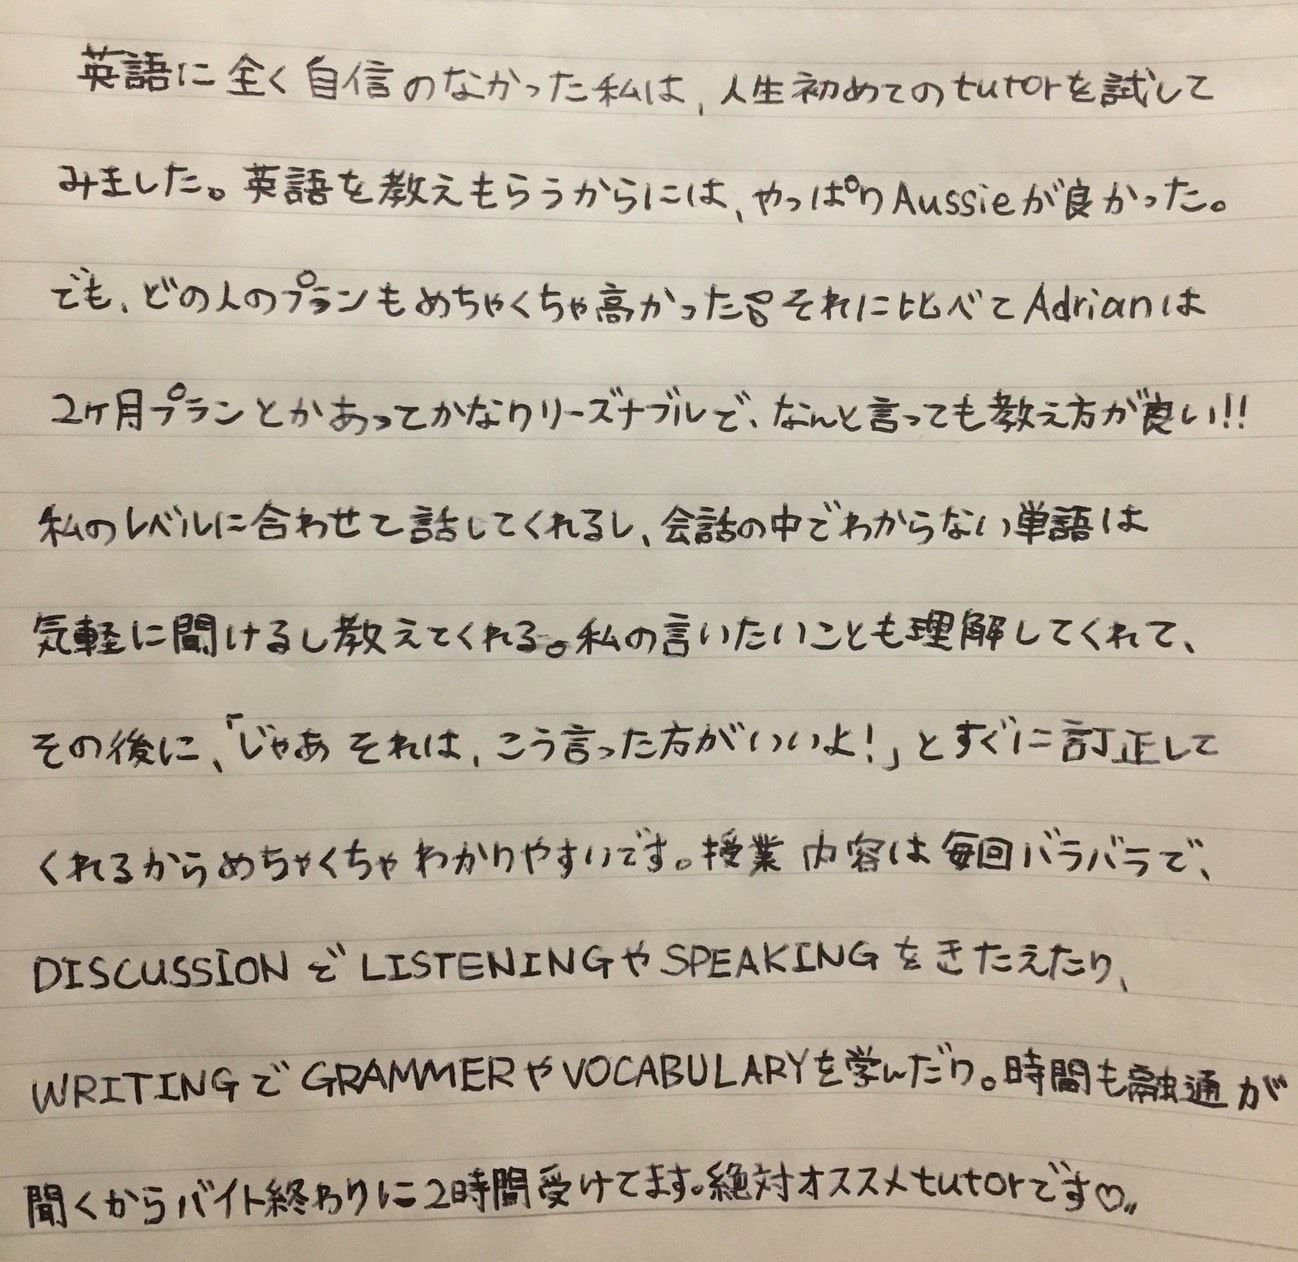 英語に全く自信のなかった私は、人生初めてのtutorを試して
みました。英語を教えもらうからには、やっぱりAussieが良かった。
でも、どの人のプランもめちゃくちゃ高かった。それに比べてAdrianは
2ヶ月プランとかあってかなりリーズナブルで、なんと言っても教え方が良い!!
私のレベルに合わせて話してくれるし、会話の中でわからない単語は
気軽に聞けるし教えてくれる。私の言いたいことも理解してくれて、
その後に、「じゃあ それは、こう言った方がいいよ!」とすぐに訂正して
くれるからめちゃくちゃわかりやすいです。授業 内容は毎回バラバラで、
DISCUSSIONでLISTENINGやSPEAKINGをきたえたり、
WRITINGでGRAMMERやVOCABULARYを学んだり。時間も融通が
聞くからバイト終わりに2時間受けてます。絶対オススメtutorです♡〃